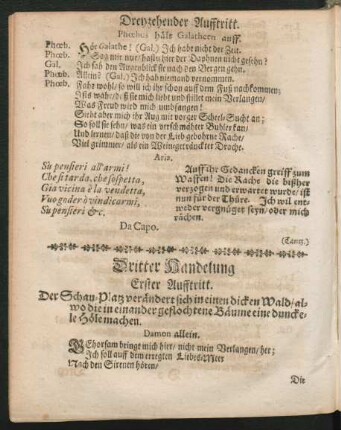 Dreyzehender Aufftritt.
Phœbus hält Galatheen auff.
Phœb. Hör Galathe! (Gal.) Ich habe nicht der Zeit.
Phœb. Sag mir nur/hastu hier der Daphnen nicht gesehn?
Gal. Ich sah den Augenblick sie nach den Bergen gehn.
Phœb. Allein? (Gal.) Ich hab niemand vernommen.
Phœb. Fahr wohl/so will ich ihr schon auff dem Fuß nachkommen:
Ists wahr/daß sie mich liebt und stillet mein Verlangen/
Was Freud wird mich umbfangen!
Sieht aber mich ihr Aug mit voriger Scheel-Sucht an;
So soll sie sehn/was ein verschmähter Buhler kan/
Und lernen/daß die von der Lieb gebohrne Rache/
Viel grimmer/als ein Weingetränckter Drache.
Aria.
Sù pensieri all'armi?
Che si tarda, che sospetta,
Gia vicina è la vendetta,
Vuo goder ò vindicarmi,
Sù pensieri &c.
Da Capo.
Auff ihr Gedancken greiff zum
Waffen! Die Rache die bißher
verzogen und erwartet wurde/ist
nun für der Thüre. Ich wil ent-
weder vergnüget seyn/oder mich
rächen.
(Tantz.)
Dritter Handelung
Erster Aufftritt.
Der Schau-Platz verändert sich in einen dicken Wald/al-
wo die in einander geflochtene Bäume eine dunck-
le Höle machen.
Damon allein.
GEhorsam bringt mich hier/nicht mein Verlangen/her;
Ich soll auff dem erregten Liebes-Meer
Nach den Sirenen hören/
Die